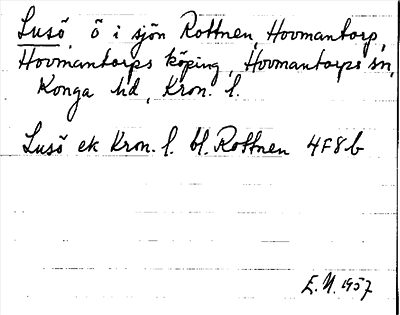 Lusö, ö i sjön Rottnen, Hovmantorp,
Hovmantorps köping, Hovmantorps sn,
Konga hd, Kron. l.
Lusö ek Kron. l. bl. Rottnen 4F8b
E.N. 1957